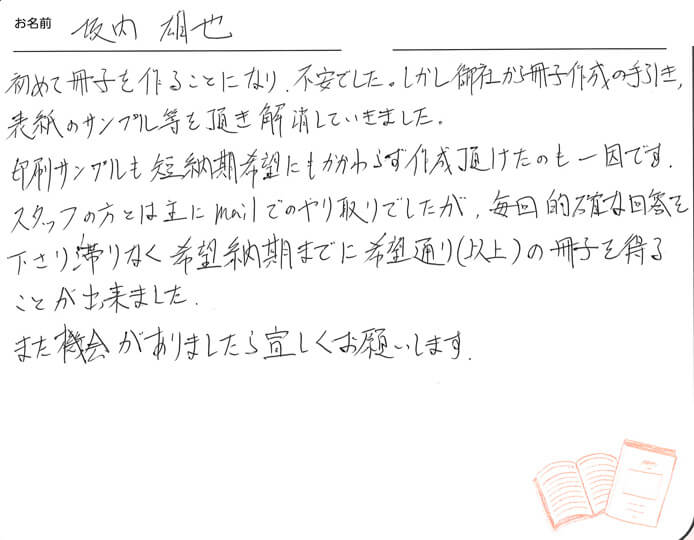 お名前 坂内 雄也
初めて冊子を作ることになり、不安でした。しかし御社から冊子作成の手引き,
表紙のサンプル等を頂き解消していきました.
印刷サンプルも短納期希望にもかかわらず作成頂けたのも一因です.
スタッフの方とは主にmailでのやり取りでしたが, 毎回的確な回答を
下さり滞りなく希望納期までに希望通り(以上)の冊子を得る
ことが出来ました.
また機会がありましたら宜しくお願いします.